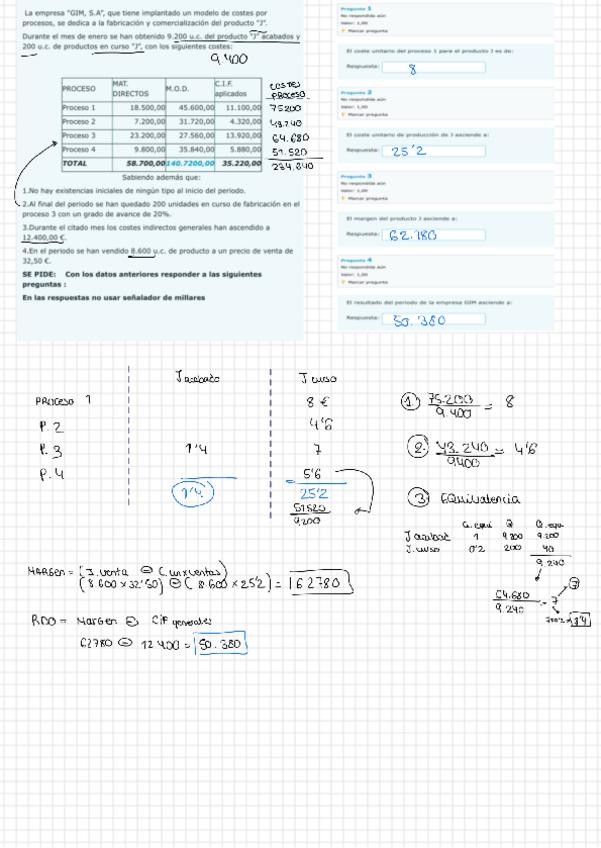 La empresa "GIM, S.A", que tiene implantado un modelo de costes por
procesos, se dedica a la fabricación y comercialización del producto "J".
Durante el mes de enero se han obtenido 9.200 u.c. del producto "J" acabados y
200 u.c. de productos en curso "J", con los siguientes costes:
9.400
PROCESO MAT. DIRECTOS M.O.D. C.I.F. aplicados COSTES PROCESO
Proceso 1 18.500,00 45.600,00 11.100,00 75200
Proceso 2 7.200,00 31.720,00 4.320,00 43.240
Proceso 3 23.200,00 27.560,00 13.920,00 64.680
Proceso 4 9.800,00 35.840,00 5.880,00 51.520
TOTAL 58.700,00 140.7200,00 35.220,00 234.640
Sabiendo además que:
1.No hay existencias iniciales de ningún tipo al inicio del periodo.
2.Al final del periodo se han quedado 200 unidades en curso de fabricación en el
proceso 3 con un grado de avance de 20%.
3.Durante el citado mes los costes indirectos generales han ascendido a
12.400,00 €.
4.En el periodo se han vendido 8.600 u.c. de producto a un precio de venta de
32,50 €.
SE PIDE: Con los datos anteriores responder a las siguientes
preguntas :
En las respuestas no usar señalador de millares
Pregunta 1
No respondida aún
Valor: 1,00
Marcar pregunta
El coste unitario del proceso 1 para el producto J es de:
Respuesta: 8
Pregunta 2
No respondida aún
Valor: 1,00
Marcar pregunta
El coste unitario de producción de J asciende a:
Respuesta: 25'2
Pregunta 3
No respondida aún
Valor: 1,00
Marcar pregunta
El margen del producto J asciende a:
Respuesta: 62.780
Pregunta 4
No respondida aún
Valor: 1,00
Marcar pregunta
El resultado del periodo de la empresa GIM asciende a:
Respuesta: 50.380
J acabado J curso
PROCESO 1 8 €
P. 2 4'6
P. 3 1'4 7
P. 4 5'6
25'2
51520
9.200
① 75.200 / 9.400 = 8
② 43.240 / 9400 = 4'6
③ EQUIVALENCIA
J acabad 1 9.200 9.200
J. curso 0'2 200 40
9.240
64.680 / 9.240 = 7
MARGEN = (J. venta ⊖ (un x ventas)
(8.600 x 32'50) ⊖ (8.600 x 25'2) = 162780
RDO = Margen ⊖ CIF generales
62780 ⊖ 12400 = 50.380